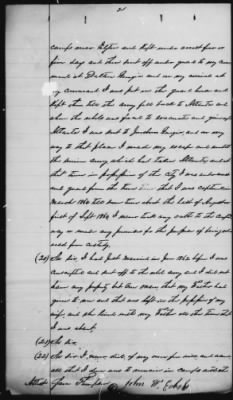 camps near Tipton and kept under arrest four or
five days and then sent off under guard to my com
mand at Dalton Georgia and on my arrival at
my command I was put in the guard house and
kept there till the army fell back to Atlanta and
when the rebels was forced to evacuate and give up
Atlanta I was sent to Jonesboro Georgia and on my
way to that place I made my escape and until
the union army which had taken Atlanta and at
that time in possession of the City I was under arrest
and guard from the time that I was captured
March 1864 till some time about the last of August or
first of Sept 1864. I never took any oath to the Confed
acy or made any promises for the purpose of being re
leased from custody.
(20) No sir, I had just married in Jan 1862 before I was
conscripted and sent off to the rebel army and I did not
have any property but one mare that my Father had
given to me and that was left in the possession of my
wife and she lived with my Father all the time that
I was absent.
(21) No sir
(22) No sir I never did, of my own free will and accord
all that I done was to remain in camps and at
Attest Geo. John W.